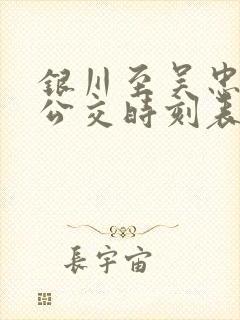 银川至吴忠
公交时刻表
長宇宙